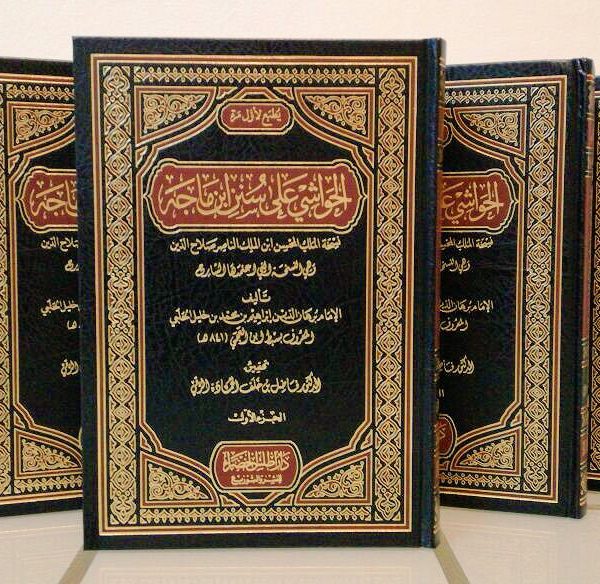 يطبع لأول مرة
الحواشي على سنن ابن ماجه
نسخة الملك المحسن ابن الملك الناصر صلاح الدين
وهي النسخة التي اعتمدها الشارح
تأليف
الإمام برهان الدين إبراهيم بن محمد بن خليل الحلبي
المعروف بسبط ابن العجمي (٨٤١ هـ)
تحقيق
الدكتور فاضل بن خلف الحمادة الرقي
الجزء الأول
دار أطلس الخضراء
للنشر والتوزيع
الحواشي